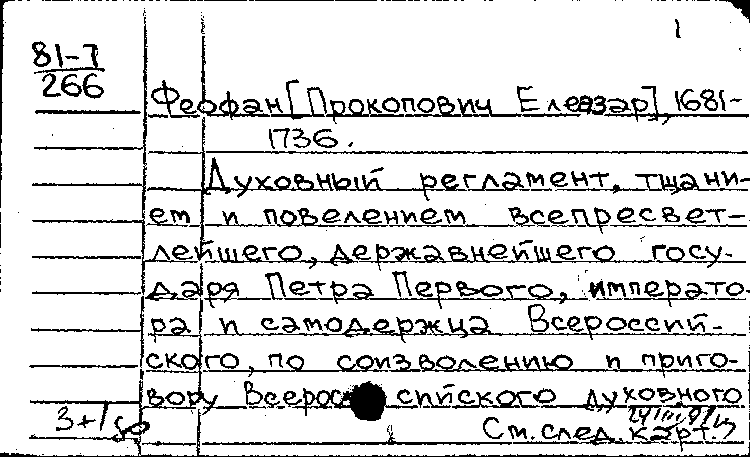 1
81-7
266
Феофан [Прокопович Елеазар], 1681-
1736.
Духовный регламент, тщани-
ем и повелением всепресвет-
лейшего, державнейшего госу-
даря Петра Первого, императо-
ра и самодержца Всероссий-
ского, по соизволению и приго-
вору Всероссийского духовного
3+1
См. след. карт.